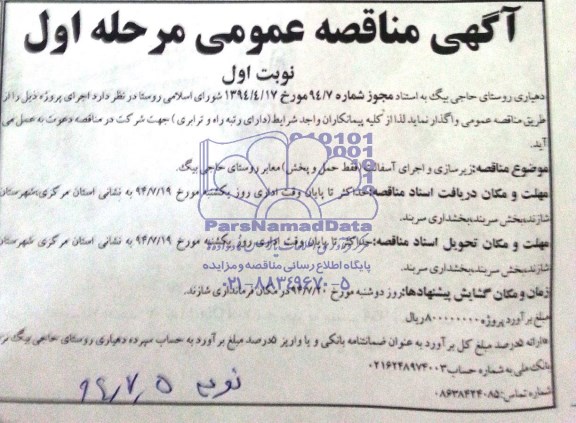 آگهی مناقصه عمومی مرحله اول
نوبت اول
دهیاری روستای حاجی بیگ به استناد مجوز شماره ۹۴/۷ مورخ ۱۳۹۴/۴/۱۷ شورای اسلامی روستا در نظر دارد اجرای پروژه ذیل را از
طریق مناقصه عمومی واگذار نماید لذا از کلیه پیمانکاران واجد شرایط (دارای رتبه راه و ترابری) جهت شرکت در مناقصه دعوت به عمل می
آید.
موضوع مناقصه: زیرسازی و اجرای آسفالت (فقط حمل و پخش) معابر روستای حاجی بیگ.
مهلت و مکان دریافت اسناد مناقصه: حداکثر تا پایان وقت اداری روز یکشنبه مورخ ۹۴/۷/۱۹ به نشانی استان مرکزی، شهرستان
شازند، بخش سربند، بخشداری سربند.
مهلت و مکان تحویل اسناد مناقصه: حداکثر تا پایان وقت اداری روز یکشنبه مورخ ۹۴/۷/۱۹ به نشانی استان مرکزی شهرستان
شازند، بخش سربند، بخشداری سربند.
زمان و مکان گشایش پیشنهادها: روز دوشنبه مورخ ۹۴/۷/۲۰ در مکان فرمانداری شازند.
مبلغ برآورد پروژه ۸۰۰۰۰۰۰۰۰ ریال
*ارائه ۵درصد مبلغ کل برآورد به عنوان ضمانتنامه بانکی و یا واریز ۵درصد مبلغ برآورد به حساب سپرده دهیاری روستای حاجی بیگ نزد
بانک ملی به شماره حساب ۰۲۱۶۲۴۸۹۷۴۰۰۳
شماره تماس: ۰۸۶۳۸۴۲۴۰۸۵
ParsNamadData
پایگاه اطلاع رسانی مناقصه و مزایده
۰۲۱-۸۸۳۴۹۶۷۰-۵
۹۴,۷,۵